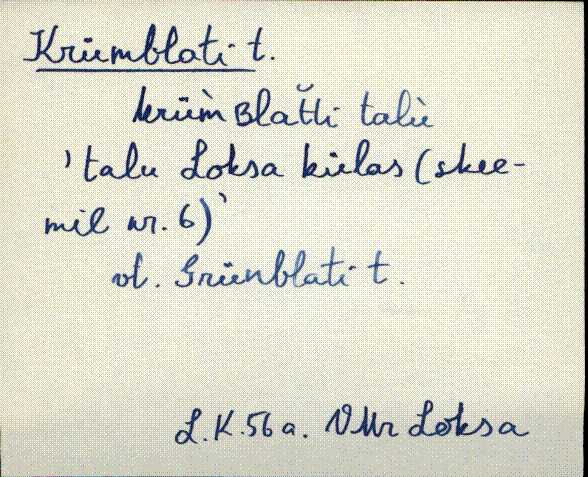 Krümblati t.
krüm̀ʙlat̆ti talù
'talu Loksa külas (skee-
mil nr. 6)'
vt. Grünblati t.
L.K. 56 a. VMr Loksa